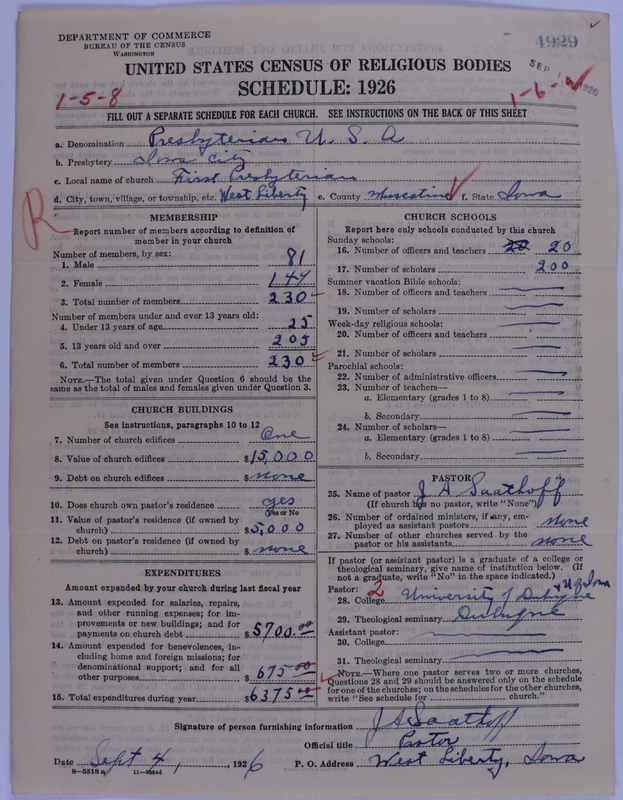 DEPARTMENT OF COMMERCE
BUREAU OF THE CENSUS
WASHINGTON
4929
UNITED STATES CENSUS OF RELIGIOUS BODIES
SCHEDULE: 1926
SEP 1926
1-5-8
1-6-
FILL OUT A SEPARATE SCHEDULE FOR EACH CHURCH. SEE INSTRUCTIONS ON THE BACK OF THIS SHEET
a. Denomination Presbyterian U. S. A
b. Presbytery Iowa City
c. Local name of church First Presbyterian
d. City, town, village, or township, etc. West Liberty e. County Muscatine f. State Iowa
R
MEMBERSHIP
Report number of members according to definition of
member in your church
Number of members, by sex:
1. Male 81
2. Female 149
3. Total number of members 230
Number of members under and over 13 years old:
4. Under 13 years of age 25
5. 13 years old and over 205
6. Total number of members 230
NOTE.—The total given under Question 6 should be
same as the total of males and females given under Question 3.
CHURCH BUILDINGS
See instructions, paragraphs 10 to 12
7. Number of church edifices One
8. Value of church edifices $15,000
9. Debt on church edifices $ none
10. Does church own pastor's residence yes
(Yes or No
11. Value of pastor's residence (if owned by
church) $5,000
12. Debt on pastor's residence (if owned by
church) $ none
EXPENDITURES
Amount expended by your church during last fiscal year
13. Amount expended for salaries, repairs,
and other running expenses; for im-
provements or new buildings; and for
payments on church debt $5700.00
14. Amount expended for benevolences, in-
cluding home and foreign missions; for
denominational support; and for all
other purposes $675.00
15. Total expenditures during year $6375.00
CHURCH SCHOOLS
Report here only schools conducted by this church
Sunday schools:
16. Number of officers and teachers 20 20
17. Number of scholars 200
Summer vacation Bible schools:
18. Number of officers and teachers
19. Number of scholars
Week-day religious schools:
20. Number of officers and teachers
21. Number of scholars
Parochial schools:
22. Number of administrative officers
23. Number of teachers—
a. Elementary (grades 1 to 8)
b. Secondary
24. Number of scholars—
a. Elementary (grades 1 to 8)
b. Secondary
PASTOR
25. Name of pastor J A Saathoff
(If church has no pastor, write "None")
26. Number of ordained ministers, if any, em-
ployed as assistant pastors none
27. Number of other churches served by the
pastor or his assistants none
If pastor (or assistant pastor) is a graduate of a college or
theological seminary, give name of institution below. (If
not a graduate, write "No" in the space indicated.)
Pastor: 2
28. College University of Dubuque & U of Iowa
29. Theological seminary Dubuque
Assistant pastor:
30. College
31. Theological seminary
NOTE.—Where one pastor serves two or more churches,
Questions 28 and 29 should be answered only on the schedule
for one of the churches; on the schedules for the other churches,
write "See schedule for church."
Signature of person furnishing information J A Saathoff
Official title Pastor
Date Sept 4, , 1926 P. O. Address West Liberty, Iowa
8—5518 a 11—